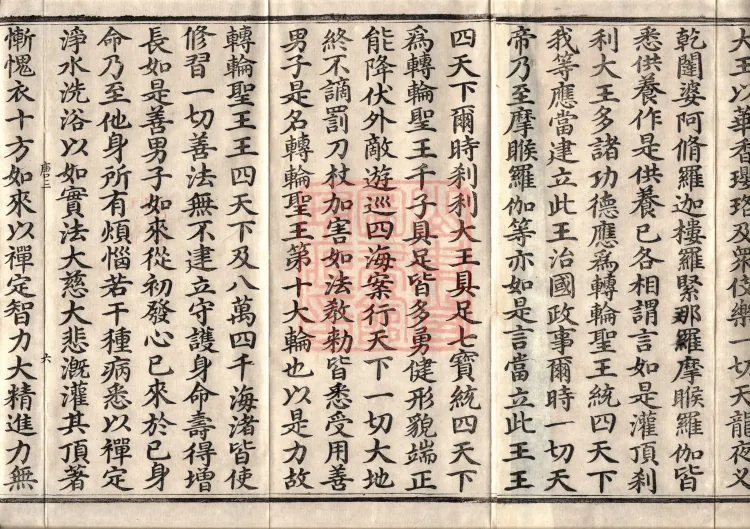 大王以華香瓔珞及衆伎樂一切天龍夜叉
乾闥婆阿脩羅迦樓羅緊那羅摩睺羅伽皆
悉供養作是供養已各相謂言如是灌頂刹
利大王多諸功德應爲轉輪聖王統四天下
我等應當建立此王治國政事爾時一切天
帝乃至摩睺羅伽等亦如是言當立此王王
四天下爾時刹利大王具足七寶統四天下
爲轉輪聖王千子具足皆多勇健形貌端正
能降伏外敵遊巡四海案行天下一切大地
終不謫罰刀杖加害如法敎勅皆悉受用善
男子是名轉輪聖王第十大輪也以是力故
轉輪聖王王四天下及八萬四千海渚皆使
修習一切善法無不建立守護身命壽得增
長如是善男子如來從初發心已來於已身
命乃至他身所有煩惱若干種病悉以禪定
淨水洗浴以如實法大慈大悲漑灌其頂著
六
慚愧衣十方如來以禪定智力大精進力無